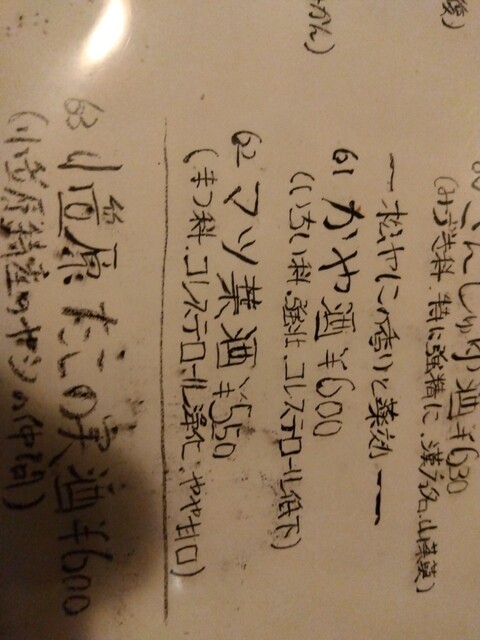 後)
かん)
60 さんしゅゆ酒 ¥630
(みずき科.特に強精に.漢方名.山茱萸)
ー 松やにの香りと薬効 ー
61 かや酒 ¥600
(いちい科.強壮.コレステロール低下)
62 マツ葉酒 ¥550
(まつ科.コレステロール浄化.やや甘口)
63 小笠原たこの実酒 ¥600
(小笠原特産のヤシの仲間)